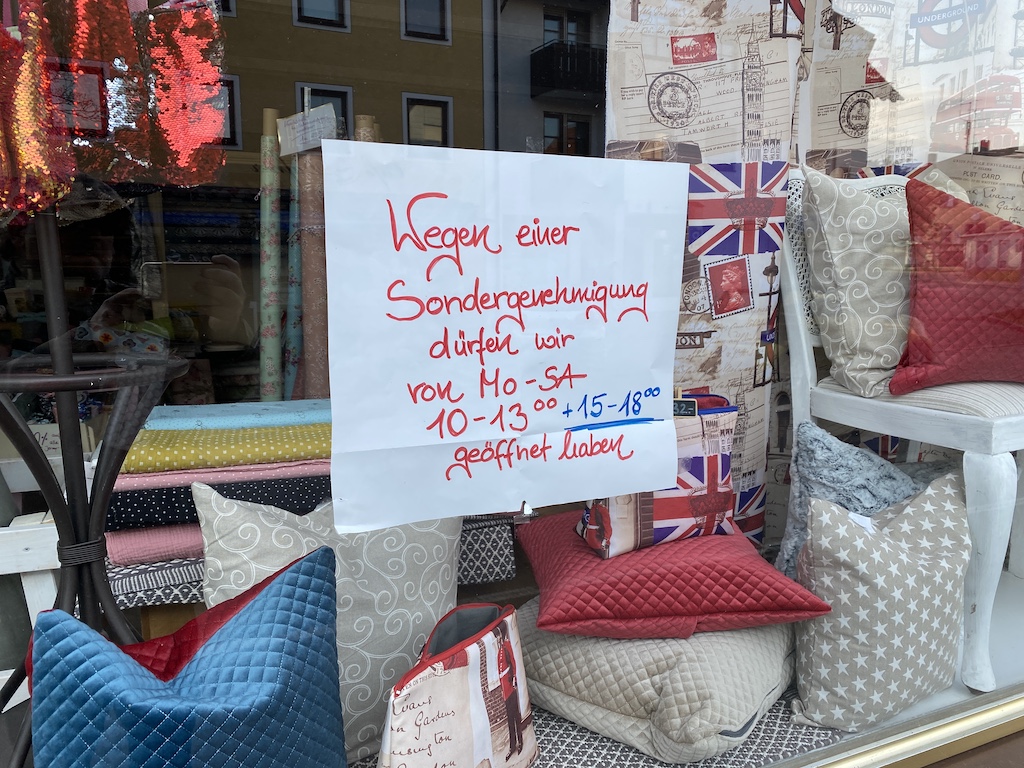 Wegen einer
Sondergenehmigung
dürfen wir
von Mo-SA
10-13⁰⁰ + 15-18⁰⁰
geöffnet haben
LONDON
UNDERGROUND
POST CARD.
32